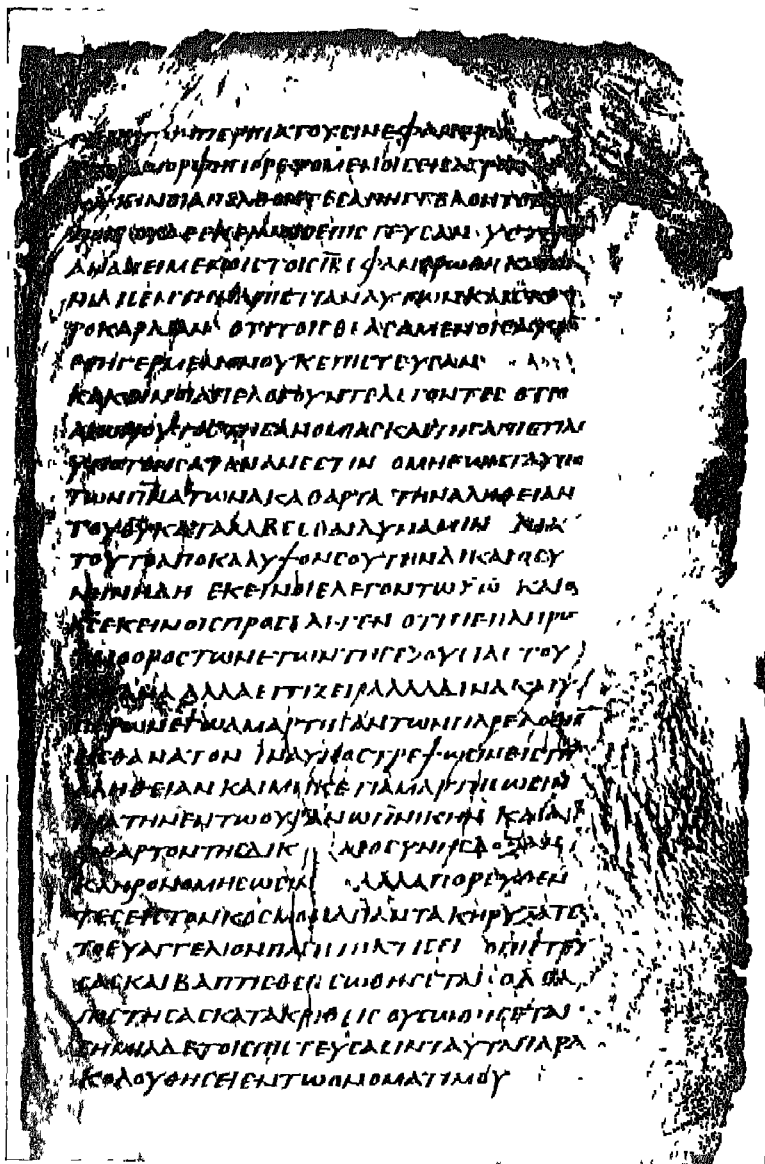 ΠΕΡΙΠΑΤΟΥCΙΝ ΕΦΑΝΕΡΩ
ΜΟΡΦΗ ΠΟΡΕΥΟΜΕΝΟΙC ΕΙC ΑΓΡΟΝ
ΚΑΚΕΙΝΟΙ ΑΠΕΛΘΟΝΤΕC ΑΠΗΓΓΕΙΛΟΝ
ΟΥΔΕ ΕΚΕΙΝΟΙC ΕΠΙCΤΕΥCΑΝ ΥCΤΕΡΟΝ
ΑΝΑΚΕΙΜΕΝΟΙC ΤΟΙC ΙΑ ΕΦΑΝΕΡΩΘΗ ΚΑΙ ΩΝΙ
ΔΙCΕΝ ΤΗΝ ΑΠΙCΤΙΑΝ ΑΥΤΩΝ ΚΑΙ CΚΛΗ
ΡΟΚΑΡΔΙΑΝ ΟΤΙ ΤΟΙC ΘΕΑCΑΜΕΝΟΙC ΑΥΤΟΝ
ΕΓΗΓΕΡΜΕΝΟΝ ΟΥΚ ΕΠΙCΤΕΥCΑΝ
ΚΑΚΕΙΝΟΙ ΑΠΕΛΟΓΟΥΝΤΕ ΛΕΓΟΝΤΕC ΟΤΙ Ο
ΑΙΩΝ ΟΥΤΟC ΤΗC ΑΝΟΜΙΑC ΚΑΙ ΤΗC ΑΠΙCΤΙΑC
ΥΠΟ ΤΟΝ CΑΤΑΝΑΝ ΕCΤΙΝ Ο ΜΗ ΕΩΝ ΤΑ ΥΠΟ
ΤΩΝ ΠΝΑΤΩΝ ΑΚΑΘΑΡΤΑ ΤΗΝ ΑΛΗΘΕΙΑΝ
ΤΟΥ ΘΥ ΚΑΤΑΛΑΒΕCΘΑΙ ΔΥΝΑΜΙΝ ΔΙΑ
ΤΟΥΤΟ ΑΠΟΚΑΛΥΨΟΝ CΟΥ ΤΗΝ ΔΙΚΑΙΟCΥ
ΝΗΝ ΗΔΗ ΕΚΕΙΝΟΙ ΕΛΕΓΟΝ ΤΩ ΧΩ ΚΑΙ Ο
ΧC ΕΚΕΙΝΟΙC ΠΡΟCΕΛΕΓΕΝ ΟΤΙ ΠΕΠΛΗΡΩ
ΤΑΙ Ο ΟΡΟC ΤΩΝ ΕΤΩΝ ΤΗC ΕΞΟΥCΙΑC ΤΟΥ
CΑΤΑΝΑ ΑΛΛΑ ΕΓΓΙΖΕΙ ΑΛΛΑ ΔΙΝΑ ΚΑΙ Υ
ΠΕΡ ΩΝ ΕΓΩ ΑΜΑΡΤΗCΑΝΤΩΝ ΠΑΡΕΔΟΘΗΝ
ΕΙC ΘΑΝΑΤΟΝ ΙΝΑ ΥΠΟCΤΡΕΨΩCΙΝ ΕΙC ΤΗΝ
ΑΛΗΘΕΙΑΝ ΚΑΙ ΜΗΚΕΤΙ ΑΜΑΡΤΗCΩCΙΝ
ΙΝΑ ΤΗΝ ΕΝ ΤΩ ΟΥΡΑΝΩ ΠΝΙΚΗΝ ΚΑΙ ΑΦ
ΘΑΡΤΟΝ ΤΗC ΔΙΚΑΙΟCΥΝΗC ΔΟΞΑΝ
ΚΛΗΡΟΝΟΜΗCΩCΙΝ ΑΛΛΑ ΠΟΡΕΥΘΕΝ
ΤΕC ΕΙC ΤΟΝ ΚΟCΜΟΝ ΑΠΑΝΤΑ ΚΗΡΥΞΑΤΕ
ΤΟ ΕΥΑΓΓΕΛΙΟΝ ΠΑCΗ ΤΗ ΚΤΙCΕΙ Ο ΠΙCΤΕΥ
CΑC ΚΑΙ ΒΑΠΤΙCΘΕΙC CΩΘΗCΕΤΑΙ Ο ΔΕ Α
ΠΙCΤΗCΑC ΚΑΤΑΚΡΙΘΕΙC ΟΥ CΩΘΗCΕΤΑΙ
CΗΜΙΑ ΔΕ ΤΟΙC ΠΙCΤΕΥCΑCΙΝ ΤΑΥΤΑ ΠΑΡΑ
ΚΟΛΟΥΘΗCΕΙ ΕΝ ΤΩ ΟΝΟΜΑΤΙ ΜΟΥ